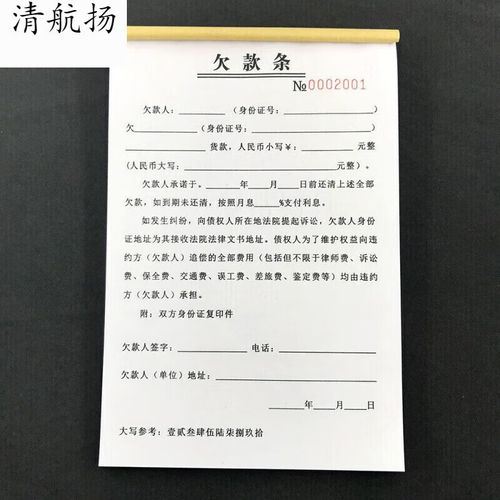 清航扬
欠款条
№0002001
欠款人：________（身份证号：____________）
欠__________（身份证号：____________）
____________货款，人民币小写￥：________元整
(人民币大写：____________________元整）。
欠款人承诺于。______年____月____日前还清上述全部
欠款，如到期未还清，按照月息_____%支付利息。
如发生纠纷，向债权人所在地法院提起诉讼，欠款人身份
证地址为其接收法院法律文书地址。债权人为了维护权益向违
约方（欠款人）追偿的全部费用（包括但不限于律师费、诉讼
费、保全费、交通费、误工费、差旅费、鉴定费等）均由违约
方（欠款人）承担。
附：双方身份证复印件
欠款人签字：____________电话：____________
欠款人（单位）地址：____________________
______年____月____日
大写参考：壹贰叁肆伍陆柒捌玖拾